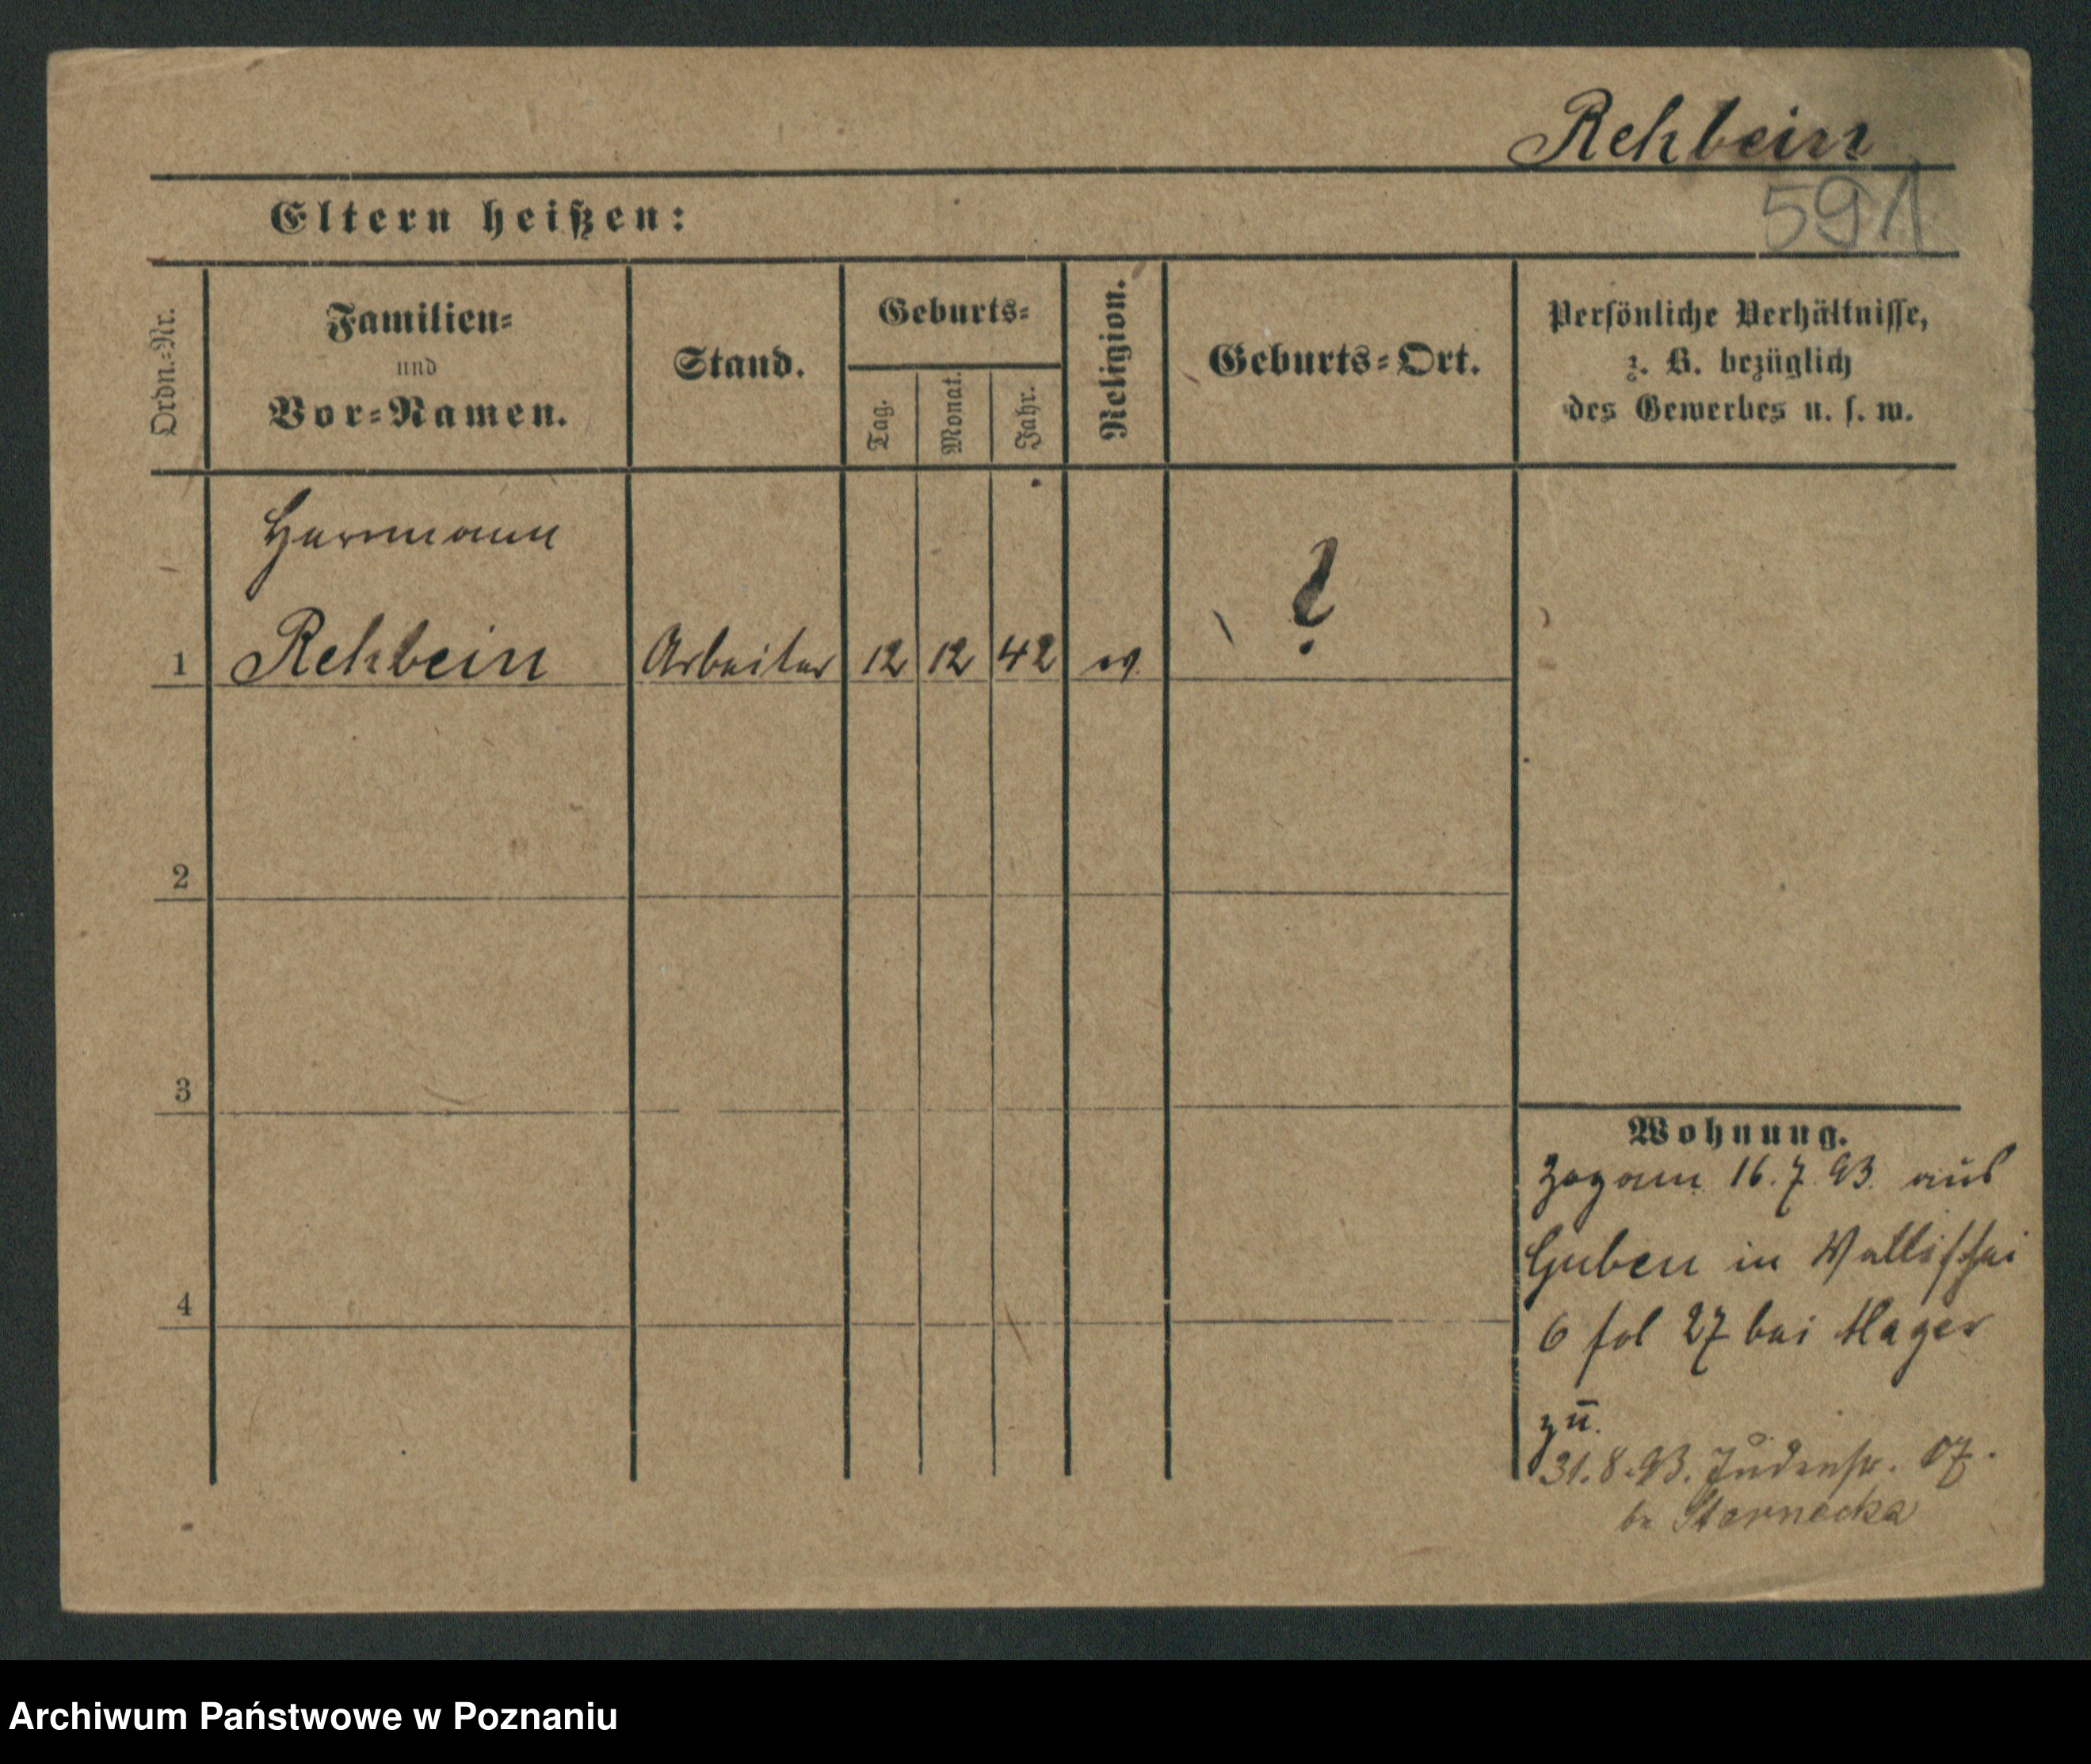 Rehbein
591
Eltern heißen:
Ordn.-Nr.
Familien-
und
Vor-Namen.
Stand.
Geburts-
Tag.
Monat.
Jahr.
Religion.
Geburts-Ort.
Persönliche Verhältnisse,
z. B. bezüglich
des Gewerbes u. s. w.
Herrmann
1 Rehbein Arbeiter 12 12 42 ev. ?
2
3
4
Wohnung.
16.7.93. aus
Guben in Wallischei
6 fol 27 bei Hager
zu.
31.8.93. Judenstr. 17.
b. Starnecka
Archiwum Państwowe w Poznaniu